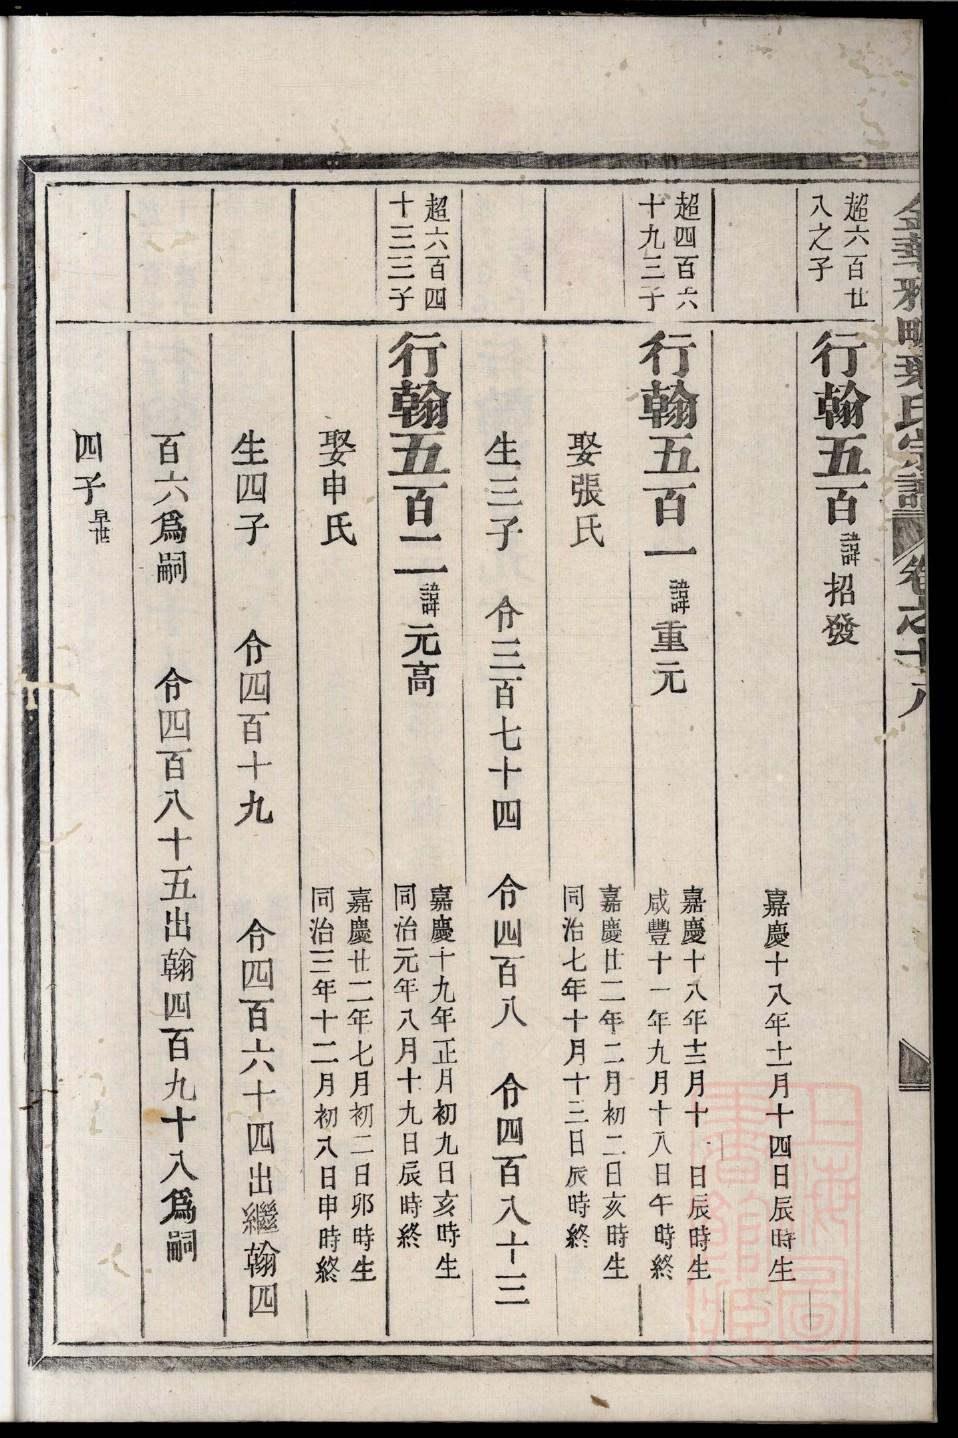 金華雅畈葉氏宗譜 卷之十八
超六百廿
八之子
行翰五百 諱招發
嘉慶十八年十一月十四日辰時生
超四百六
十九三子
行翰五百一 諱重元
嘉慶十八年十二月十一日辰時生
咸豐十一年九月十八日午時終
娶張氏
嘉慶廿二年二月初二日亥時生
同治七年十月十三日辰時終
生三子 令三百七十四 令四百八 令四百八十三
超六百四
十三三子
行翰五百二 諱元高
嘉慶十九年正月初九日亥時生
同治元年八月十九日辰時終
娶申氏
嘉慶廿二年七月初二日卯時生
同治三年十二月初八日申時終
生四子 令四百十九 令四百六十四出繼翰四
百六爲嗣 令四百八十五出翰四百九十八爲嗣
四子早世
上海圖書館藏